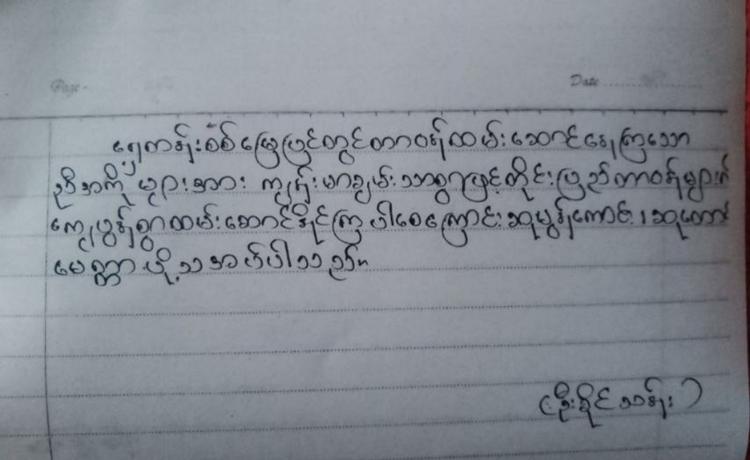 Page -
Date
ရှေ့တန်းစစ်မြေပြင်တွင်တာဝန်ထမ်းဆောင်နေကြသော
ညီအကိုများအား ကျန်းမာချမ်းသာစွာဖြင့်တိုင်းပြည်တာဝန်များကို
ကျေပွန်စွာထမ်းဆောင်နိုင်ကြပါစေကြောင်း ဆုမွန်ကောင်း၊ ဆုတောင်း
မေတ္တာပို့သအပ်ပါသည်။
(ဦးခိုင်သန်း)